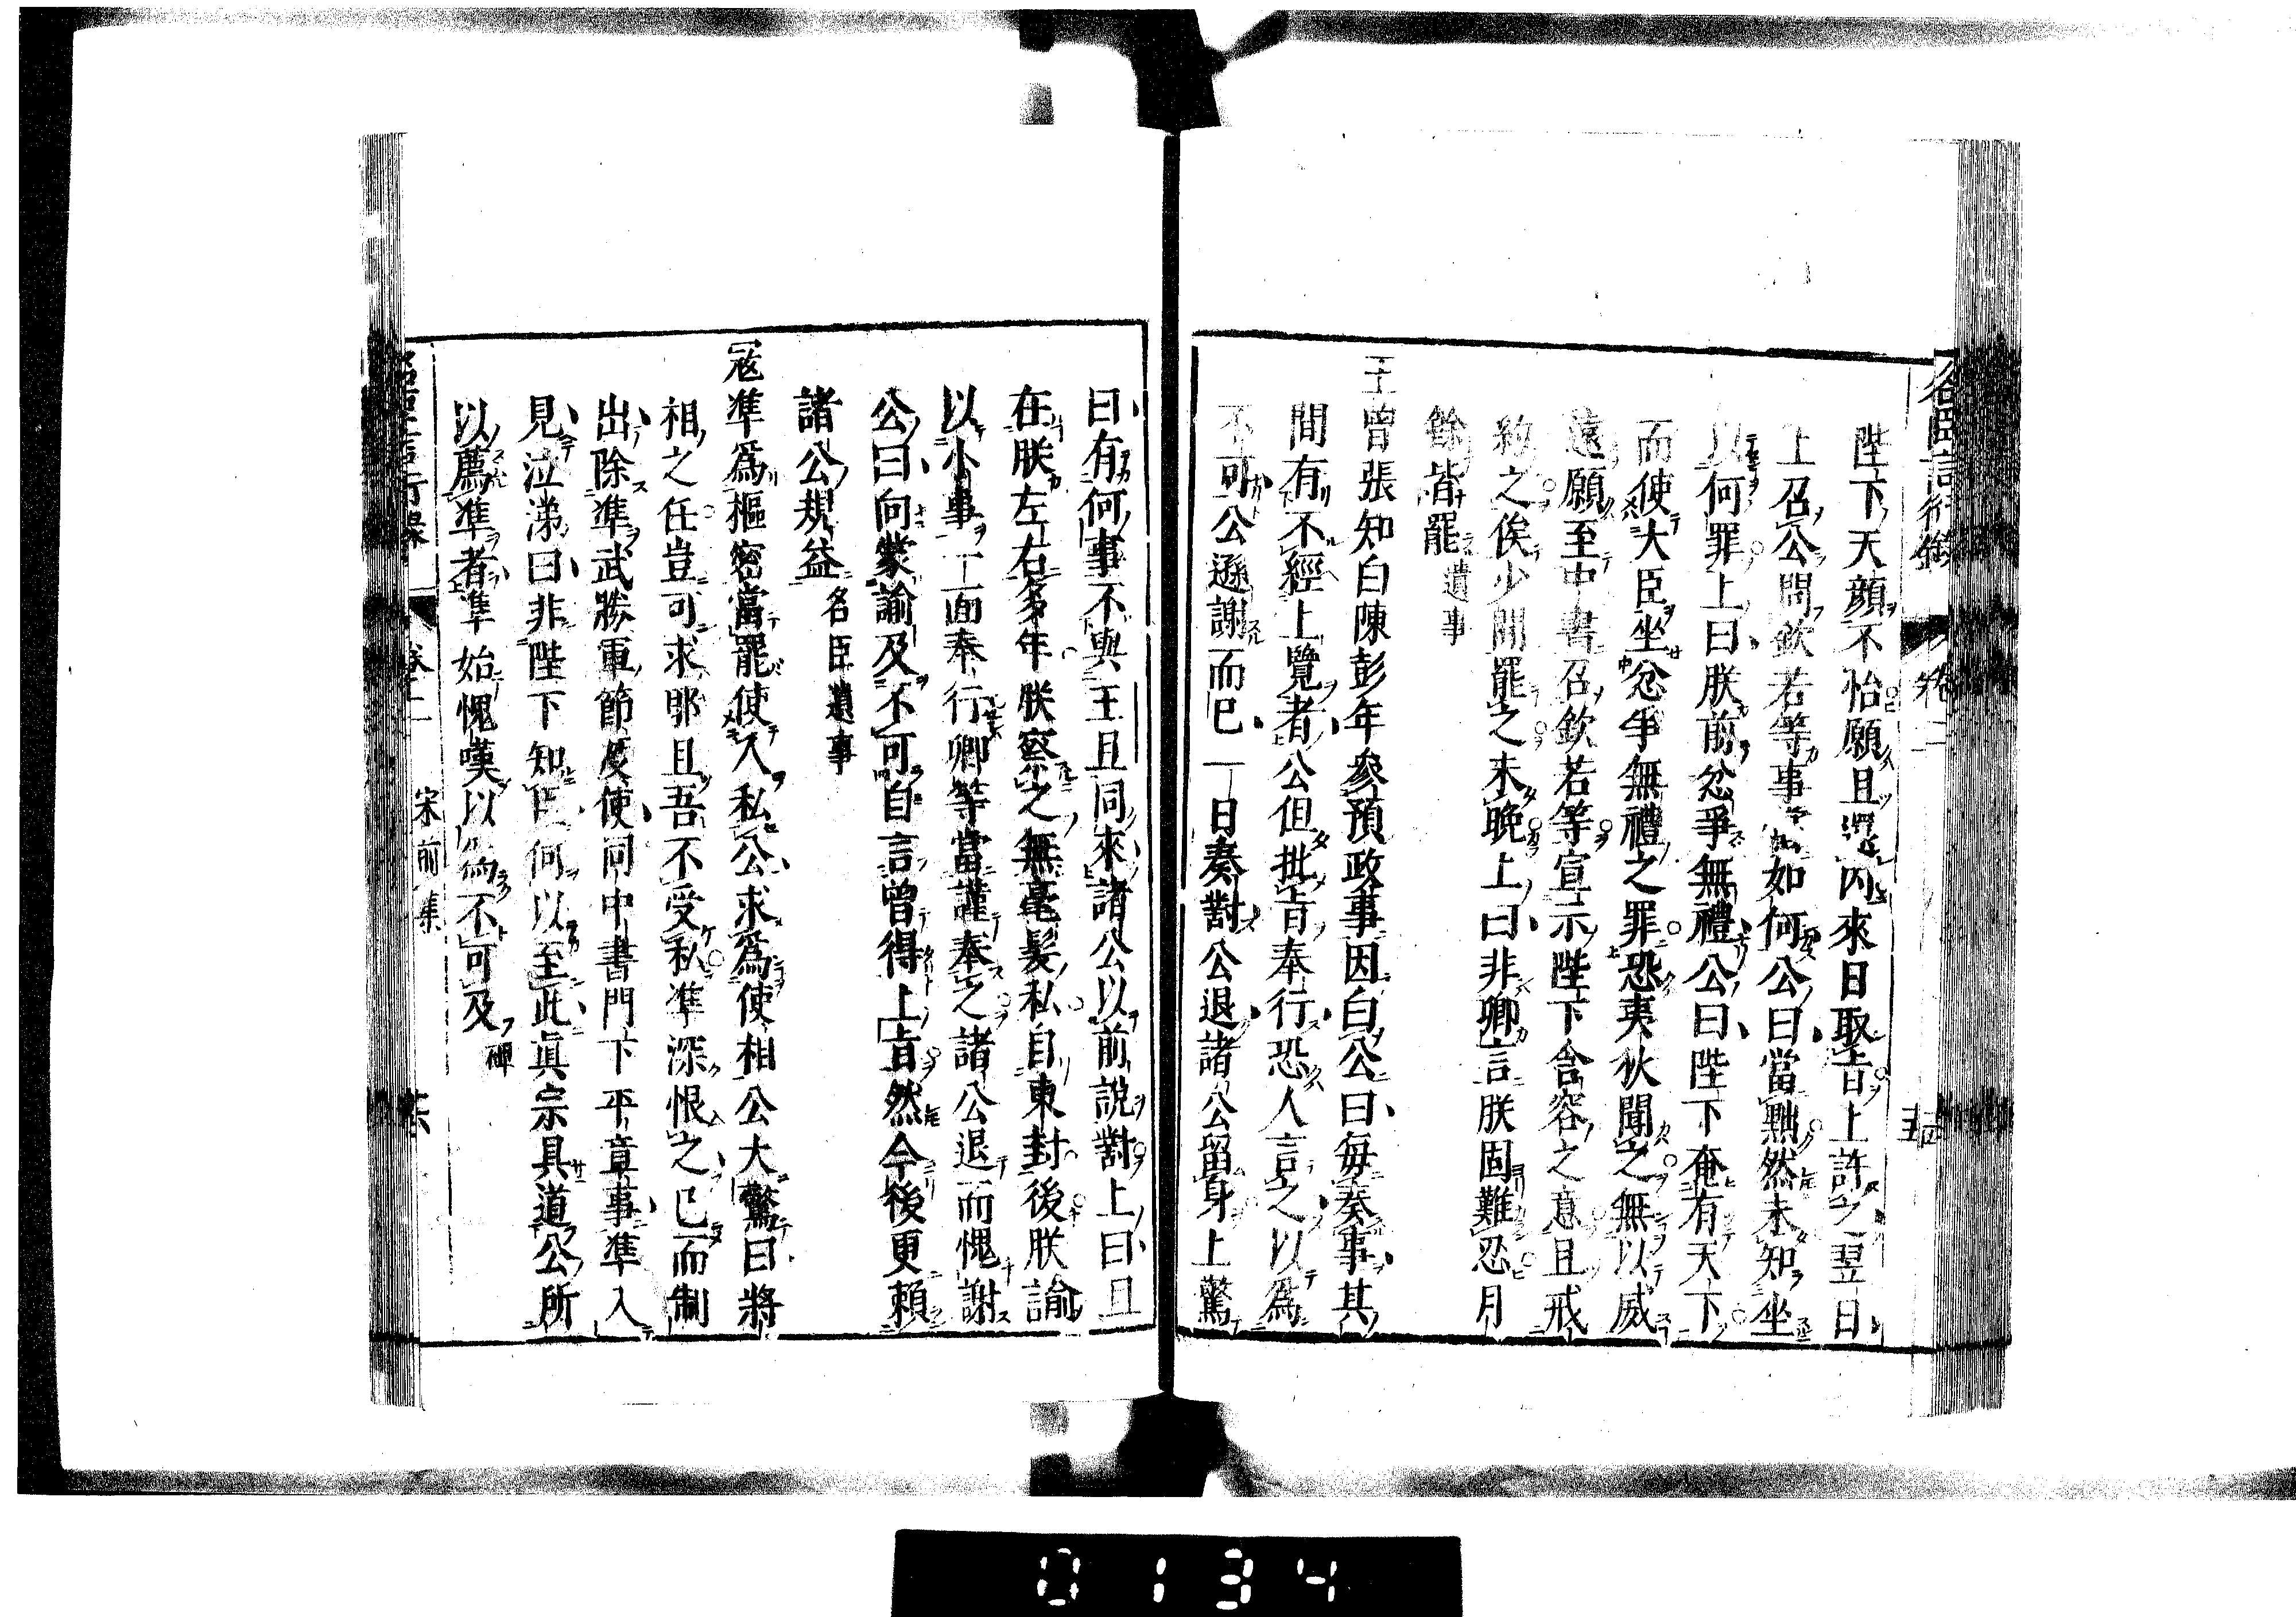 名臣言行錄 卷二 五
陛下天顏不怡願且還内來日取旨上許之翌日
上召公問欽若等事當如何公曰當黜然未知坐
以何罪上曰朕前忿爭無禮公曰陛下奄有天下
而使大臣坐忿爭無禮之罪恐夷狄聞之無以威
遠願至中書召欽若等宣示陛下含容之意且戒
約之俟少間罷之未晩上曰非卿言朕固難忍月
餘皆罷遺事
王曾張知白陳彭年參預政事因白公曰毎奏事其
間有不經上覽者公但批旨奉行恐人言之以爲
不可公遜謝而已一日奏對公退諸公留身上驚
曰有何事不與王旦同來諸公以前說對上曰旦
在朕左右多年朕察之無毫髮私自東封後朕諭
以小事一面奉行卿等當謹奉之諸公退而愧謝
公曰向蒙諭及不可自言曾得上旨然今後更賴
諸公規益名臣遺事
冦準爲樞密當罷使人私公求爲使相公大驚曰將
相之任豈可求耶且吾不受私準深恨之已而制
出除準武勝軍節度使同中書門下平章事準入
見泣涕曰非陛下知臣何以至此眞宗具道公所
以薦準者準始愧嘆以爲不可及碑
卷二 宋前集